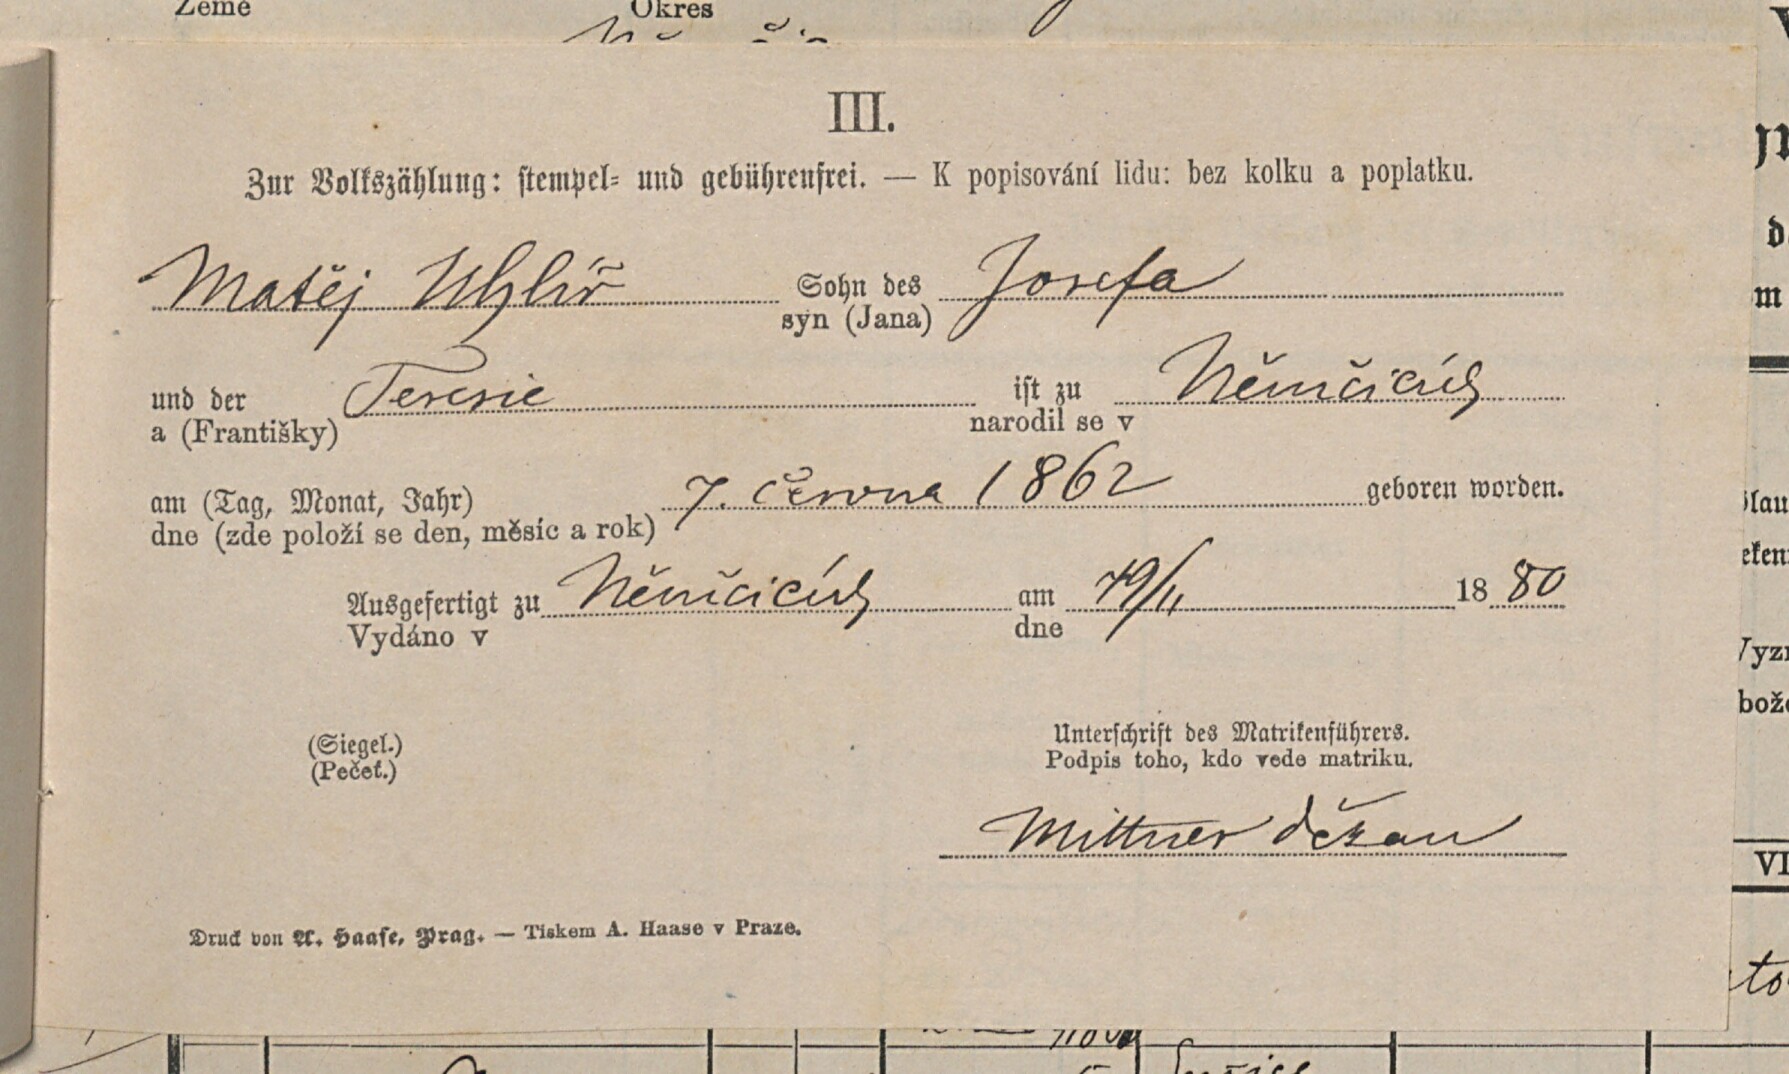 Země Okres
III.
Zur Volkszählung: stempel- und gebührenfrei. — K popisování lidu: bez kolku a poplatku.
Matěj Uhlíř Sohn des Josefa
syn (Jana)
und der Teresie ist zu Němčicích
a (Františky) narodil se v
am (Tag, Monat, Jahr) 7. června 1862 geboren worden.
dne (zde položí se den, měsíc a rok)
Ausgefertigt zu Němčicích am 19/11 1880
Vydáno v dne
(Siegel.) Unterschrift des Matrikenführers.
(Pečeť.) Podpis toho, kdo vede matriku.
Mittner děkan
Druck von A. Haase, Prag. — Tiskem A. Haase v Praze.
VI